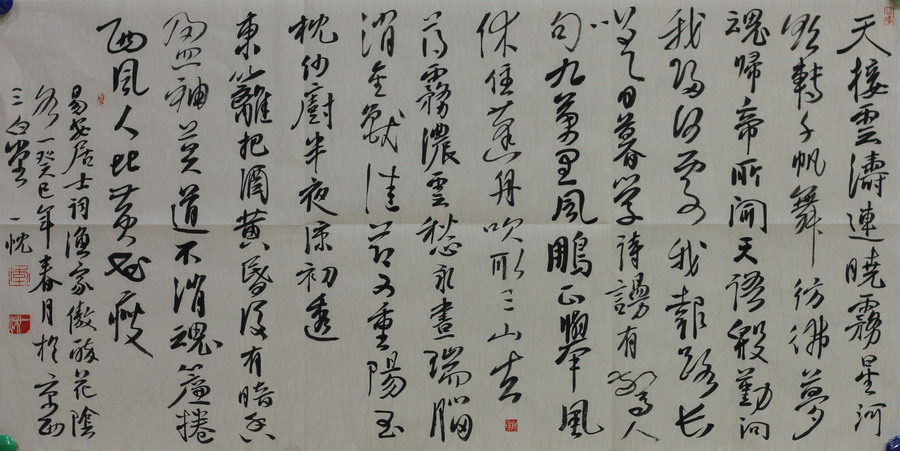 天接雲濤連曉霧星河
欲轉千帆舞彷彿夢
魂歸帝所聞天語殷勤問
我歸何處我報路長
嗟日暮學詩謾有驚人
句九萬里風鵬正舉風
休住蓬舟吹取三山去
薄霧濃雲愁永晝瑞腦
消金獸佳節又重陽玉
枕紗廚半夜涼初透
東籬把酒黃昏後有暗香
盈袖莫道不消魂簾捲
西風人比黃花瘦
易安居士詞漁家傲醉花陰
各一癸巳年春月於京西
三白堂 一忱